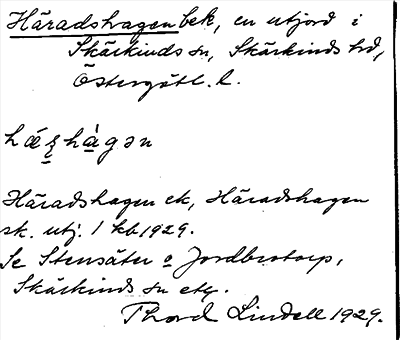 Häradshagen bek, en utjord i
Skärkinds sn, Skärkinds hd,
Östergötl. l.
hǽʂhàgən
Häradshagen ek, Häradshagen
sk. utj. 1 kb 1929.
Se Stensäter o Jordbrotorp,
Skärkinds sn etc.
Thord Lindell 1929.